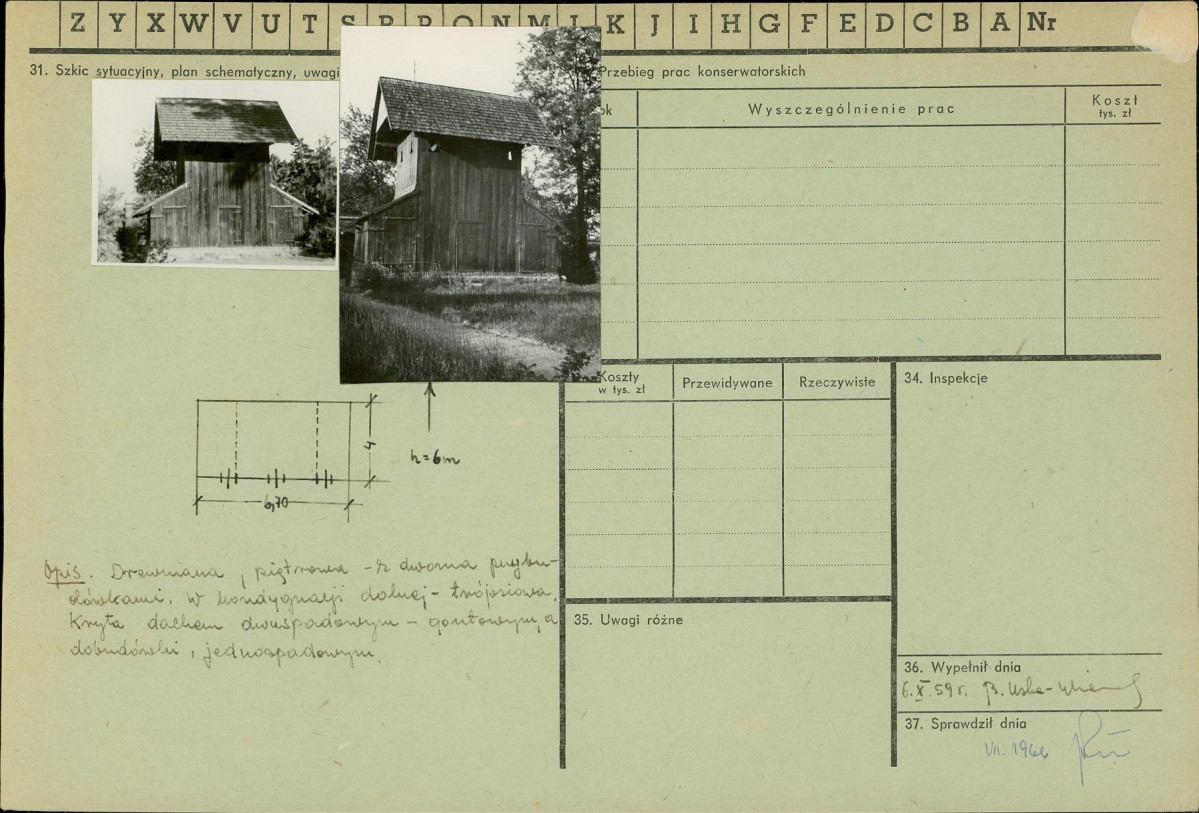 Z Y X W V U T S R P O N M L K J I H G F E D C B A Nr
31. Szkic sytuacyjny, plan schematyczny, uwagi
Przebieg prac konserwatorskich
ok
Wyszczególnienie prac
Koszt
tys. zł
4
h=6m
6,70
Opis. Drewniana, piętrowa - z dwoma przybu-
dówkami. W kondygnacji dolnej - trójosiowa.
Kryta dachem dwuspadowym - gontowym, a
dobudówki, jednospadowym.
Koszty
w tys. zł
Przewidywane
Rzeczywiste
34. Inspekcje
35. Uwagi różne
36. Wypełnił dnia
6.X.59 r. B.
37. Sprawdził dnia
VII. 1966